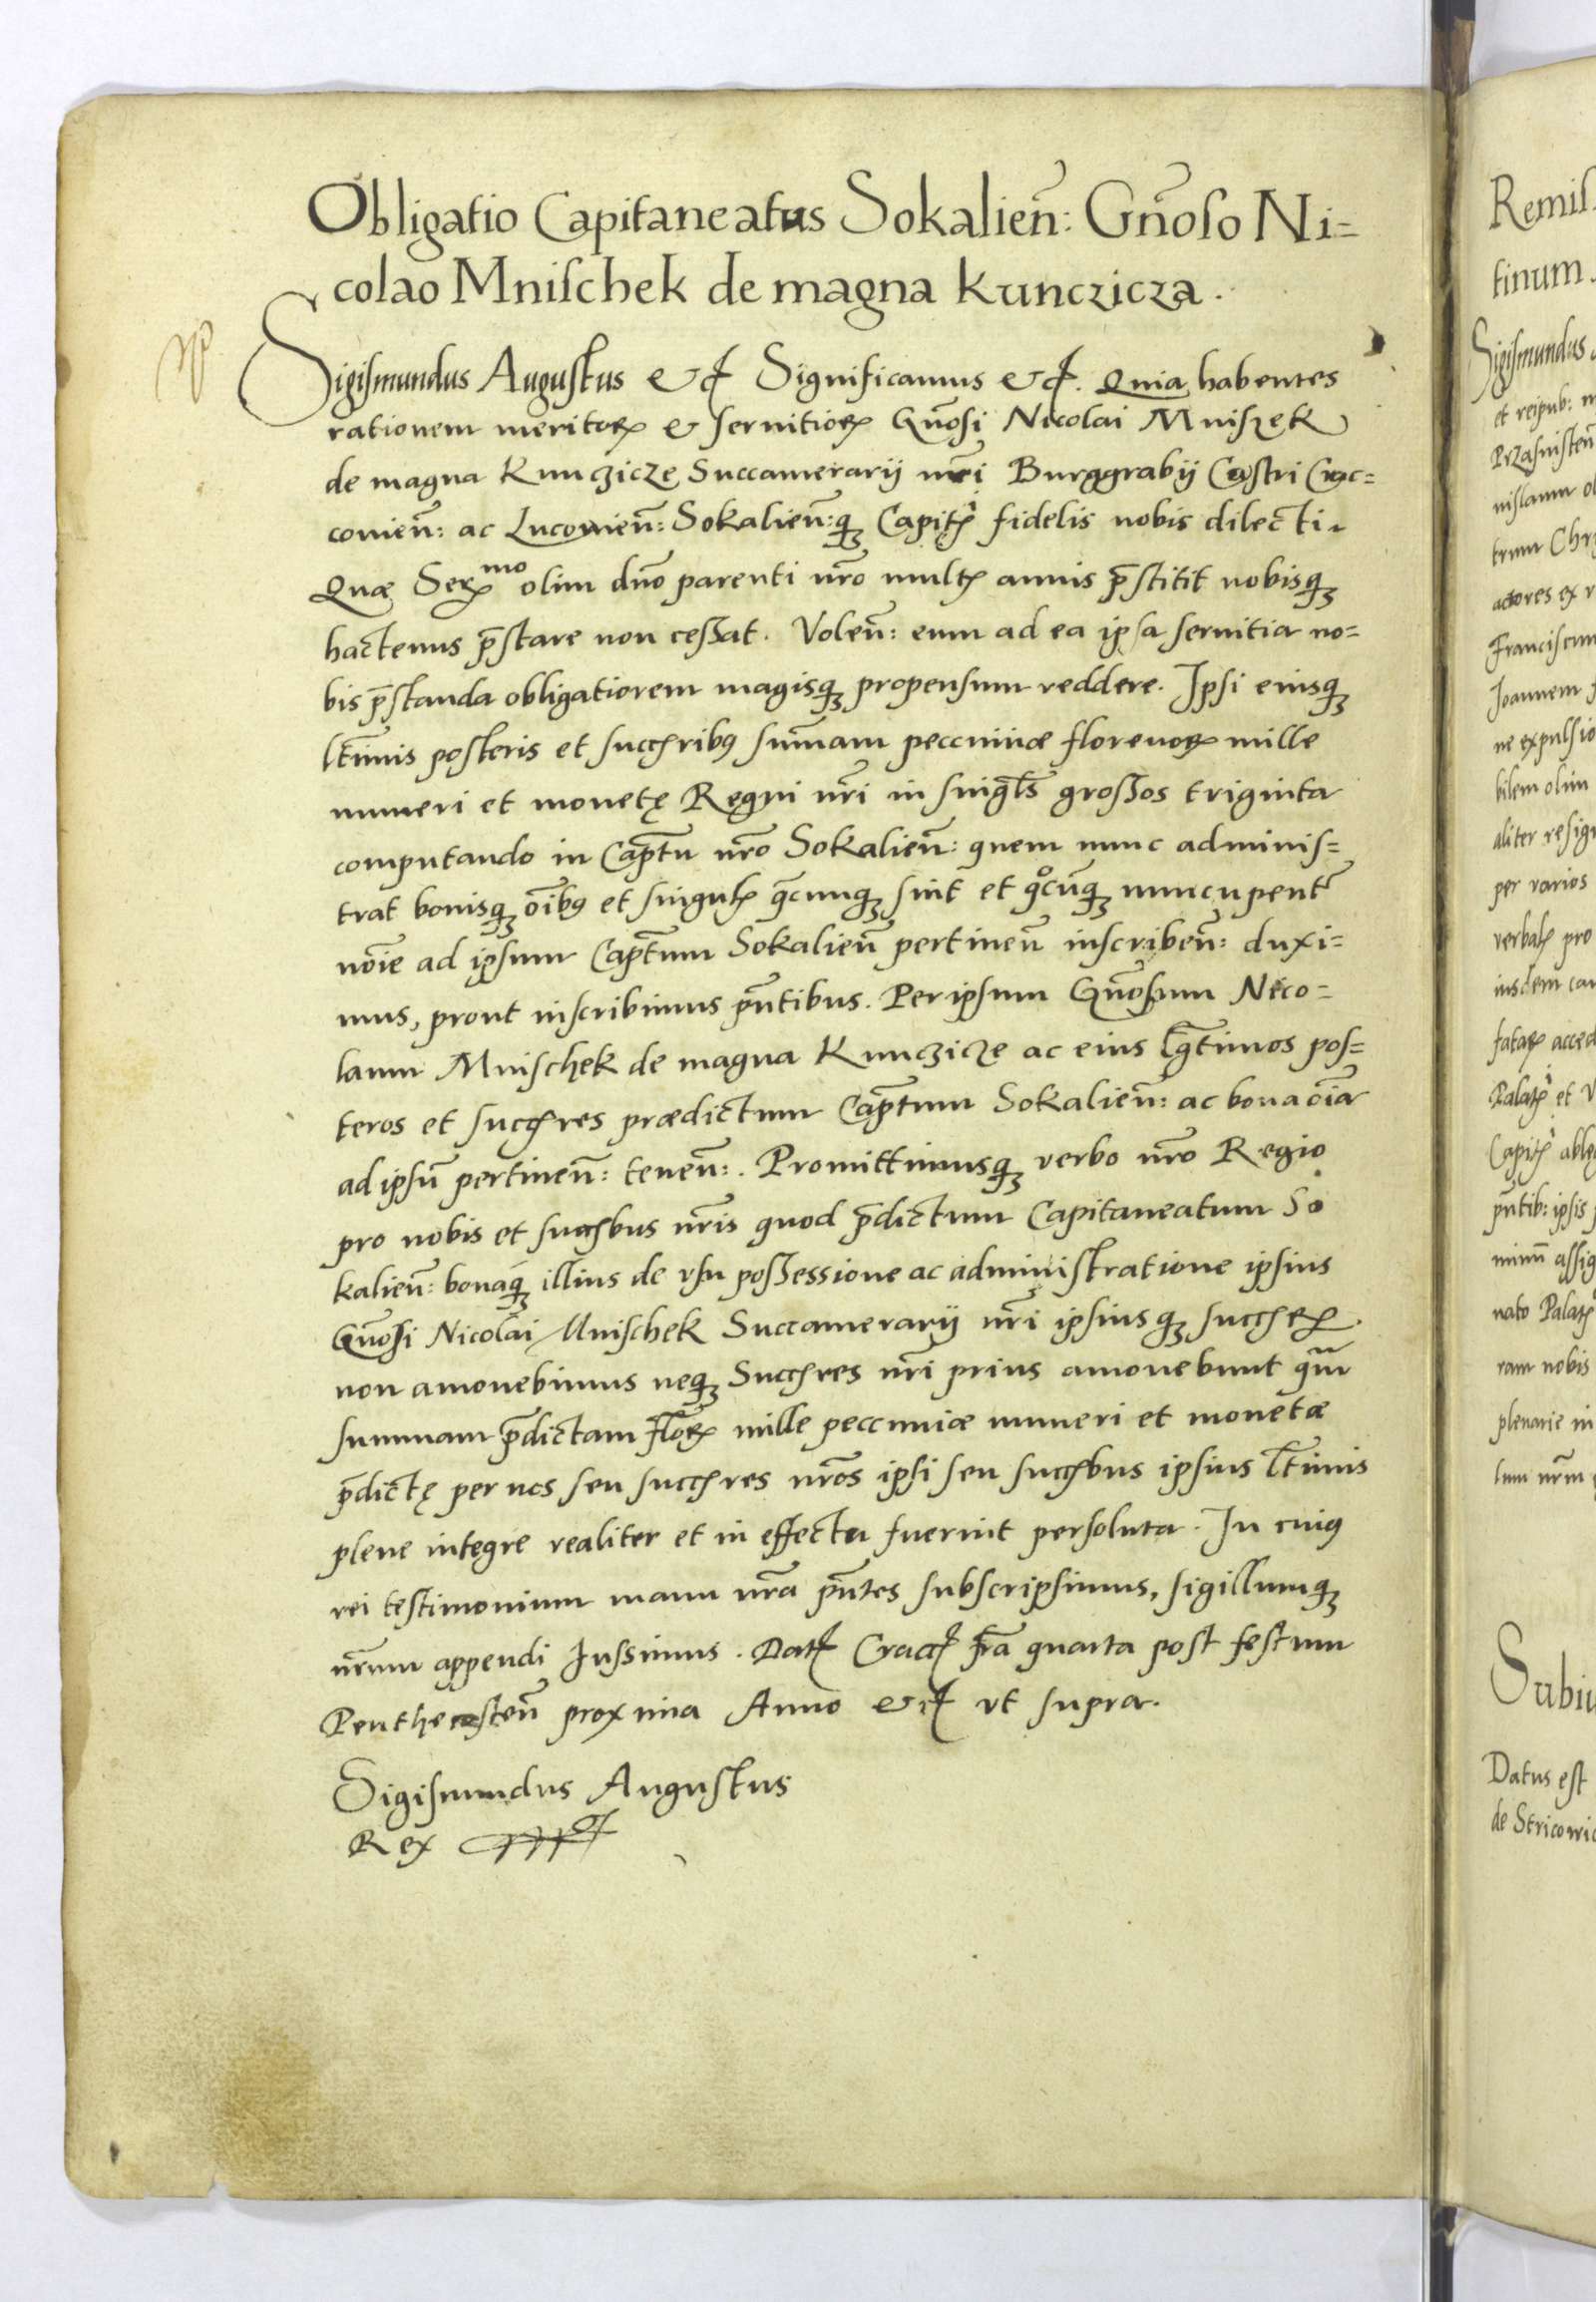 Obligatio Capitaneatus Sokalień: Gnōso Ni=
colao Mnischek de magna Kunczicza.
Sigismundus Augustus etc Significamus etc. Quia habentes
rationem meritorꝝ et seruitiorꝝ Gnōsi Nicolai Mniszek
de magna Kunczicze Succamerarij nrī Burggrabij Castri Crac=
conień: ac Luconień: Sokalień:qꝫ Capitꝭ fidelis nobis dilecti
Quæ Serꝫmo olim dnō parenti nrō multꝭ annis p̄stitit nobisqꝫ
hactenus p̄stare non cessat. Voleń: eum ad ea ipsa seruitia no=
bis p̄standa obligatiorem magisqꝫ propensum reddere. Ipsi eiusqꝫ
ltīmis posteris et succꝭribꝰ sum̄am peccuniæ florenorꝝ mille
numeri et monetę Regni nrī in singtˉs grossos triginta
computando in Cap̄tu nrō Sokalień: quem nunc adminis=
trat bonisqꝫ oībꝰ et singulꝭ q̄cunqꝫ sint et qͦcūqꝫ nuncupentͬ
noīe ad ipsum Cap̄tum Sokalień pertineń inscribeń: duxi=
mus, prout inscribimus pn̄tibus. Per ipsum Gnōsum Nico=
laum Mnischek de magna Kunczicze ac eius lgt̄imos pos=
teros et succꝭres prædictum Cap̄tum Sokalień: ac bona oīa
ad ipsū pertineń: teneń:. Promittimusqꝫ verbo nrō Regio
pro nobis et succꝭbus nrīs quod p̄dictum Capitaneatum So
kalień: bonaqꝫ illius de vsu possessione ac administratione ipsius
Gnōsi Nicolai Mnischek Succamerarij nrī ipsiusqꝫ succꝭrꝝ
non amouebimus neqꝫ Succꝭres nrī prius amouebunt qm̄
summam p̄dictam flōrꝝ mille peccuniæ numeri et monetæ
p̄dictę per nos seu succꝭres nrōs ipsi seu succꝭbus ipsius ltīmis
plene integre realiter et in effectu fuerint persoluta. In cuiꝰ
rei testimonium manu nrā pn̄tes subscripsimus, sigillumqꝫ
nrūm appendi Iussimus. Datꝭ Cracꝭ frā quarta post festum
Penthecosteń proxima Anno etc vt supra.
Sigismundus Augustus
Rex
Remis
tinum.
Sigismundus
et reipub: m
Przasnisteń
nislaum ol
trum Chr
actores ex r
Franciscum
Joannem
ne expulsio
bilem olim
aliter resig
per varios
verbalꝭ pro
iusdem cau
fatarꝝ acced
Palatꝭ et V
Capitꝭ
pn̄tib: ipsis
nimū assig
nato Palatꝭ
ram nobis
plenarie in
lum nrm̄
Subiu
Datus est
de Stricowic